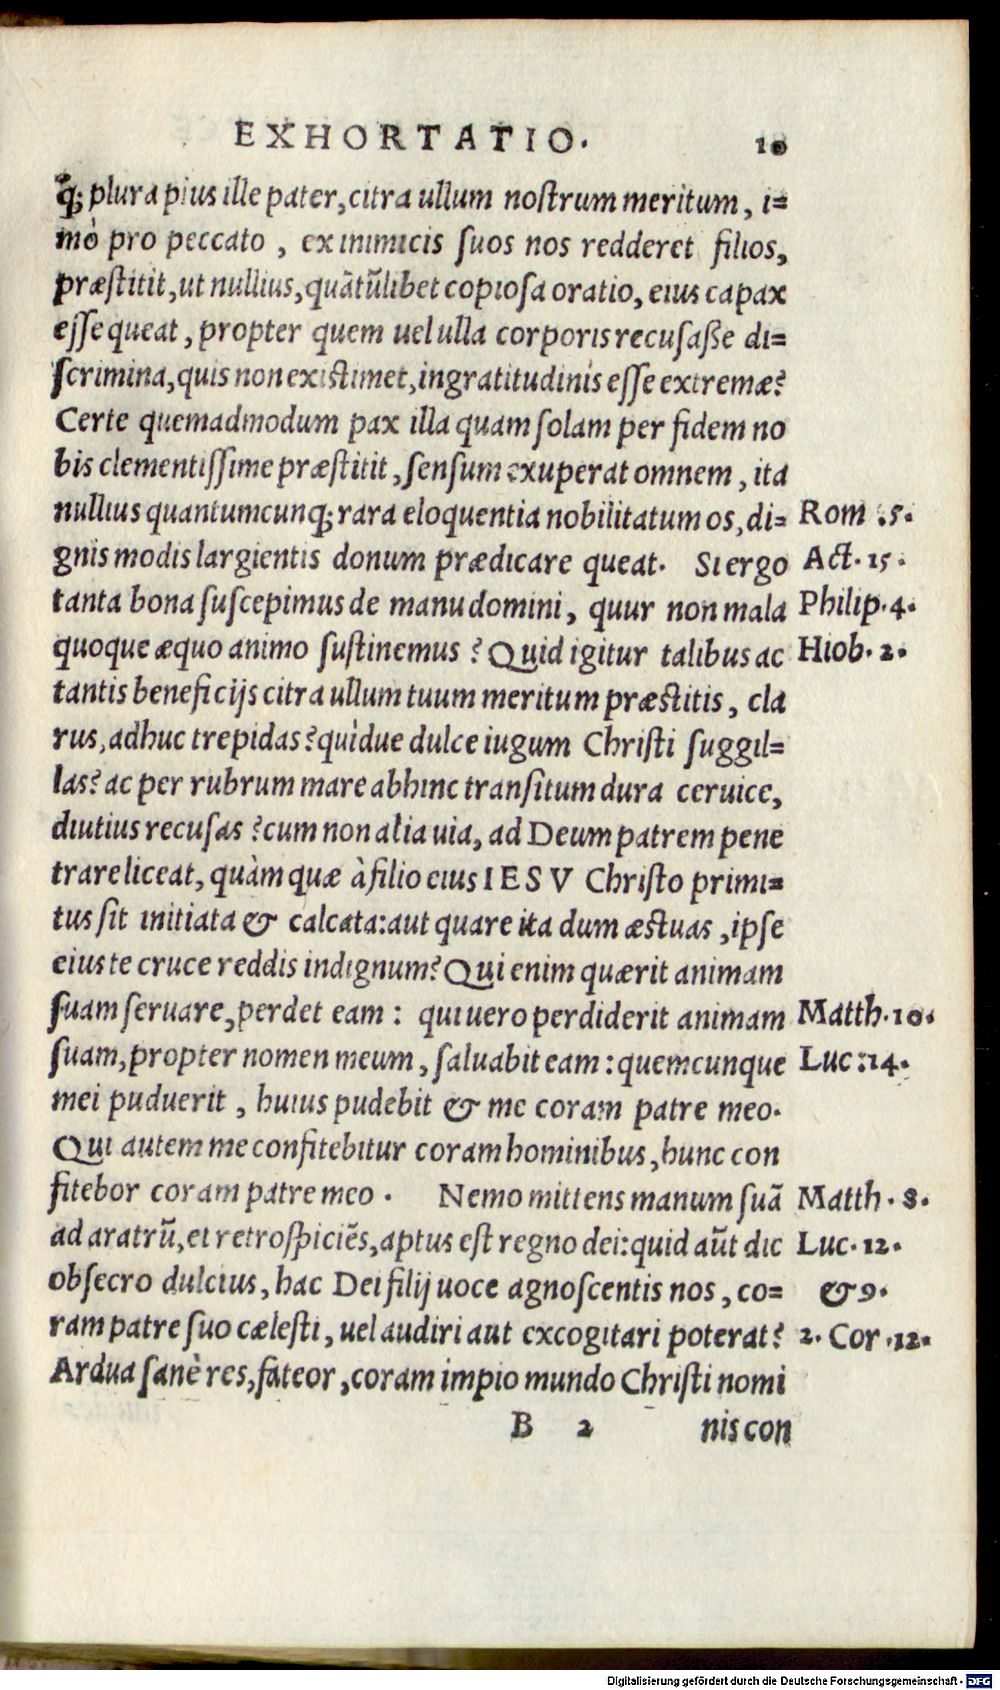 EXHORTATIO. 10
q̃; plura pius ille pater, citra ullum nostrum meritum, i=
mò pro peccato, ex inimicis suos nos redderet filios,
præstitit, ut nullius, quãtũlibet copiosa oratio, eius capax
esse queat, propter quem uel ulla corporis recusaße di=
scrimina, quis non existimet, ingratitudinis esse extremæ?
Certe quemadmodum pax illa quam solam per fidem no
bis clementissime præstitit, sensum exuperat omnem, ita
nullius quantumcunq; rara eloquentia nobilitatum os, di= Rom .5.
gnis modis largientis donum prædicare queat. Si ergo Act. 15.
tanta bona suscepimus de manu domini, quur non mala Philip. 4.
quoque æquo animo sustinemus? Quid igitur talibus ac Hiob. 2.
tantis beneficijs citra ullum tuum meritum præstitis, cla
rus, adhuc trepidas? quìdue dulce iugum Christi suggil=
las? ac per rubrum mare abhinc transitum dura ceruice,
diutius recusas? cum non alia uia, ad Deum patrem pene
trare liceat, quàm quæ à filio eius IESV Christo primi=
tus sit initiata & calcata: aut quare ita dum æstuas, ipse
eius te cruce reddis indignum? Qui enim quærit animam
suam seruare, perdet eam: qui uero perdiderit animam Matth. 10.
suam, propter nomen meum, saluabit eam: quemcunque Luc :14.
mei puduerit, huius pudebit & me coram patre meo.
Qui autem me confitebitur coram hominibus, hunc con
fitebor coram patre meo. Nemo mittens manum suã Matth. 8.
ad aratrũ, et retrospiciẽs, aptus est regno dei: quid aũt dic Luc. 12.
obsecro dulcius, hac Dei filij uoce agnoscentis nos, co= & 9.
ram patre suo cælesti, uel audiri aut excogitari poterat? 2. Cor .12.
Ardua sanè res, fateor, coram impio mundo Christi nomi
B 2 nis con
Digitalisierung gefördert durch die Deutsche Forschungsgemeinschaft - DFG